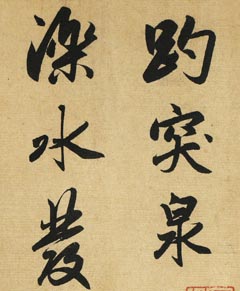 趵突泉
濼水發